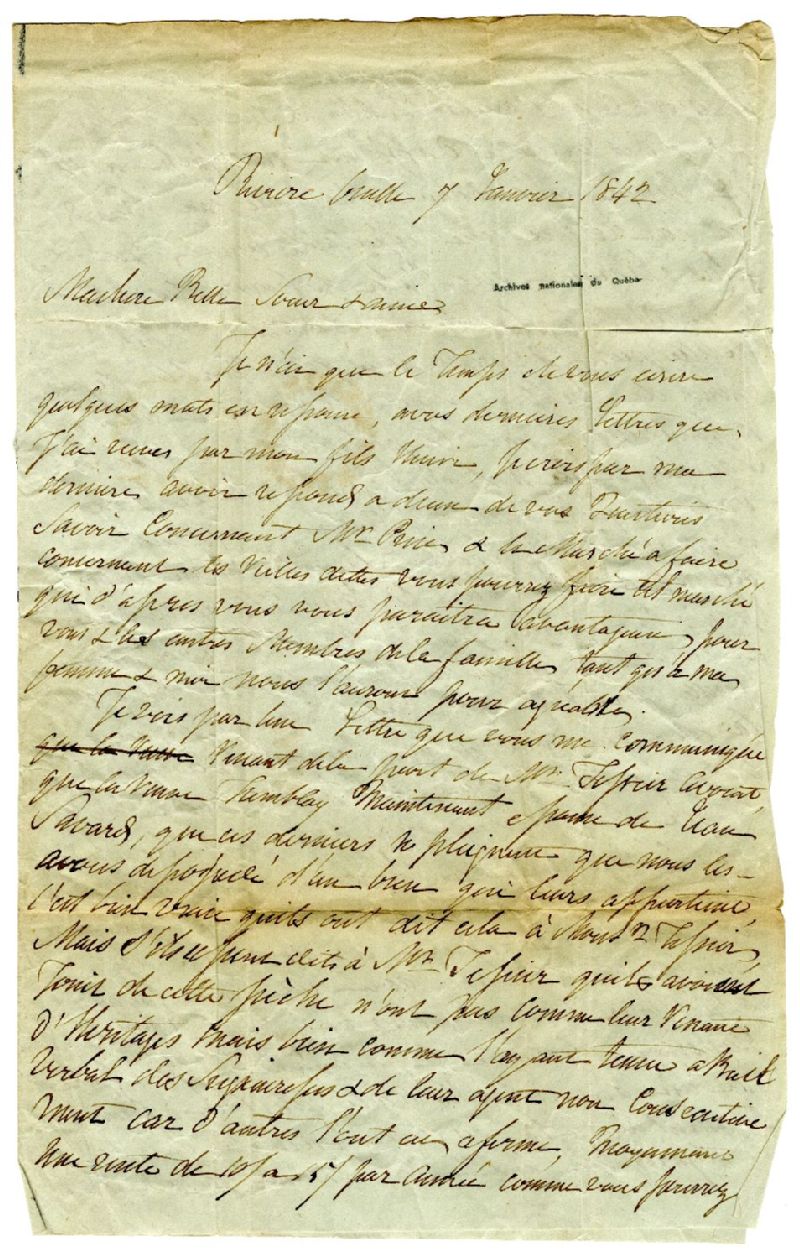 Rivière ouelle 7 Janvier 1842
Archives nationales du Québec
Machere Belle Soeur & amie
Je n'ai que le Temps de vous ecrire
quelques mots en reponse, avos dernieres Lettres que
J'ai reçues par mon fils Henri, je crois par ma
derniere avoir repond a deux de vos
Savoir Concernant Mr Price & le Marché a faire
concernant les vous pourrez faire tel marché
qui d'apres vous vous paraitra avantageux, pour
vous & les autres Membres dela famille, tant qu'a ma
femme & moi nous l'aurons pour agréable.
Je vois par une Lettre que vous me communiquée
que la Veuve Venant dela part de Mr. Tessier avocat,
que la Veuve Tremblay Maintenant epouse de
Savard, que ces derniers se pleignent que nous les
avons depouillé d'un bien qui leurs appartient,
C'est bien vraie quils ont dit cela à Monsr Tessier,
Mais S'ils eussent dits à Mr Tessier quils avoient
Jouit de cette pêche n'ont pas comme leur Venant
d'Heritages mais bien comme l'ayant tenue a Bail
verbal des & de leur agent non Consecutive
ment car d'autres l'ont eu a ferme, Moyennant
Une rente de 10/ a 15/ par année comme vous pourrez